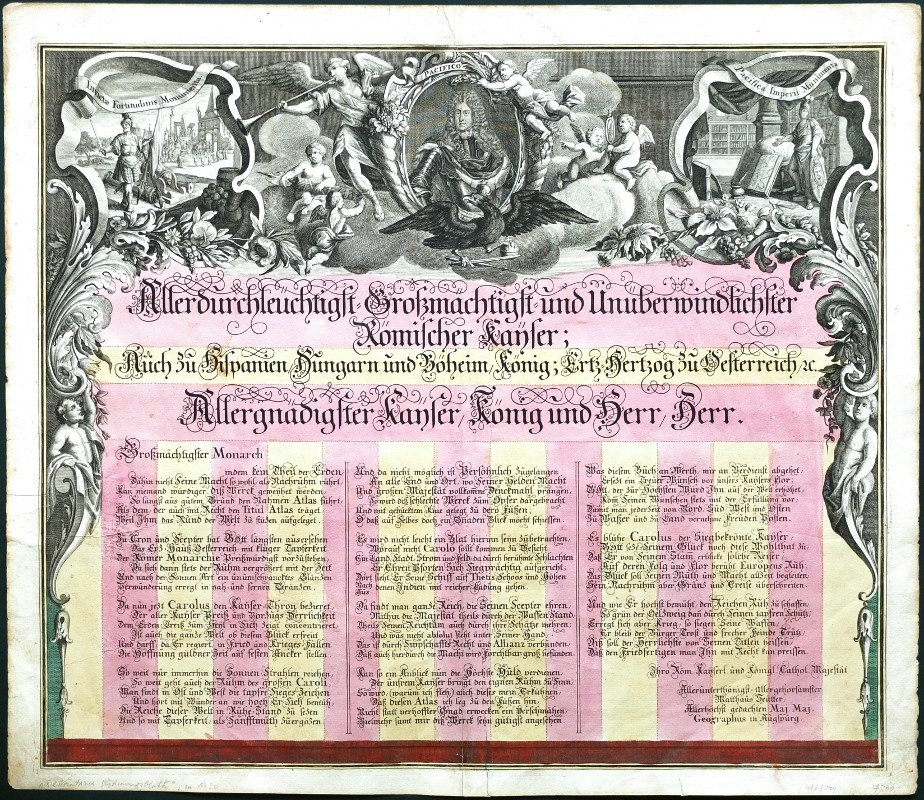 Invictæ Fortitudinis Monumenta
PACIFICO
Pacifica Imperii Munimenta
Allerdurchleuchtigst Großmächtigst und Unüberwindlichster
Römischer Kaÿser;
Auch zu Hispanien, Hungarn und Böheim, König; Ertz-Hertzog zu Oesterreich, &c.
Allergnädigster Kaÿser, König und Herr, Herr.
Großmächtigster Monarch
indem kein Theil der Erden
Dahin nicht Seine Macht so wohl als Nachruhm rührt
Kan niemand würdiger diß Werck geweihet werden.
So langs aus gutem Grund den Nahmen Atlas führt.
Als dem, der auch mit Recht den Titul Atlas träget
Weil Ihm das Rund der Welt zu füßen aufgeleget.
Zu Cron und Scepter hat Gott längsten ausersehen
Das Ertz-Hauß Oesterreich mit kluger Tapferkeit
Der Römer Monarchie Preißwürdig vorzustehen.
Da nun jezt Carolus den Kaÿser-Thron bezieret.
Der aller Kaÿser Preiß und Vorzugs Herrlichkeit
Ist auch die ganze Welt ob diesem Blick erfreut
Und darff, da Er regiert, in Fried und Krieges-Fällen
Die Hoffnung güldner Zeit auf festen Ancker stellen.
So weit nur immerhin die Sonnen Strahlen reichen,
So weit geht auch der Ruhm der großen Caroli.
Man findt in Ost und West die tapfre Sieges Zeichen
Und hört mit Wunder an wie hoch Er Sich bemüh,
Die Reiche dieser Welt in Ruhe-Stand zu sezen
Und so mit Tapferkeit, als Sanfftmuth zuergözen
Und da nicht möglich ist Persöhnlich zugelangen,
An alle End und Ort, wo Seiner Helden Macht
Und großen Majestät vollkomne prangen.
So ward diß schlechte Werck zum Opfer dargebracht
Und mit gebücktem Knie gelegt zu dero Füßen;
O daß auf Selbes doch ein Gnaden Blick möcht schießen.
Es wird nicht leicht ein Blat hierinn seyn zubetrachten,
Worauf nicht Carolo sollt kommen zu Gesicht
Ein Land, Stadt, Strom und Feld, so durch berühmte Schlachten
Er Ehren Pforten Sich Siegprächtig aufgericht
Dort sieht Er Seine Schiff auf Thetis Schoos und Höhen
Nach Indien mit reicher Ladung gehen.
Da findt man ganze Reich, die Seinen Scepter ehren,
Theils Seinen Nachthum auch durch ihrer Schäze mehren
Und was nicht absolut steht unter Seiner Hand,
Das ist durch Sippschaffts Recht und Allianz verbunden,
Daß auch hierdurch die Macht wird Forchtbar groß befunden
Kan so ein Anblick nun die Höchste Huld verdienen.
Der unsrem Kaÿser bringt den eignen Ruhm zu Sinn.
So wird, (warum ich fleh) auch dieses mein Erkühnen,
Daß diesen Atlas ich leg zu den Füßen hin,
Nicht statt verhoffter Gnad erwecken ein Verschmähen,
Vielmehr samt mir diß Werck seyn gütigst angesehen
Was diesem Buch an Werth, mir an Verdienst abgehet,
Ersezt ein treuer Wunsch vor unsers Kaÿsers flor;
Gott, der zur Höchsten Würd Ihn auf der Welt erhöhet,
Kom Seinen Wünschen stets mit der Erfüllung vor,
Damit man jederzeit von Nord, Süd, West und Osten
Zu Wasser und zu Land vernehme Freuden Posten.
Es blühe Carolus der Siegbekrönte Kaÿser,
Gott seze Seinem Glück noch diese Wohlthat zu,
Daß Er von Seinem Stam erblicke solche Reiser,
Auf deren Folg und Flor beruht Europens Ruh,
Das Glück soll Seinen Muth und Macht allzeit begleiten,
Sein Nachruhm aber Gränz und Creise überschreiten.
Und wie Er höchst bemüht, den Reichen Ruh zu schaffen,
So grün der Oel-Zweig dan durch Seinen tapfren Schutz
Erregt sich aber Krieg, so siegen Seine Waffen,
Er bleib der Bürger Trost und frecher Feinde Trutz
Diß soll der Herrlichste von Seinen Tituln heisen,
Daß den Friedfertigen man Ihn mit Recht kan preissen.
Ihro Röm. Kaÿserl. und Königl. Cathol. Majestät
Allerunterthänigst-Allergehorsamster
Matthäus Seutter
Allerhöchst gedachter Maj. Maj.
Geographus in Augspurg